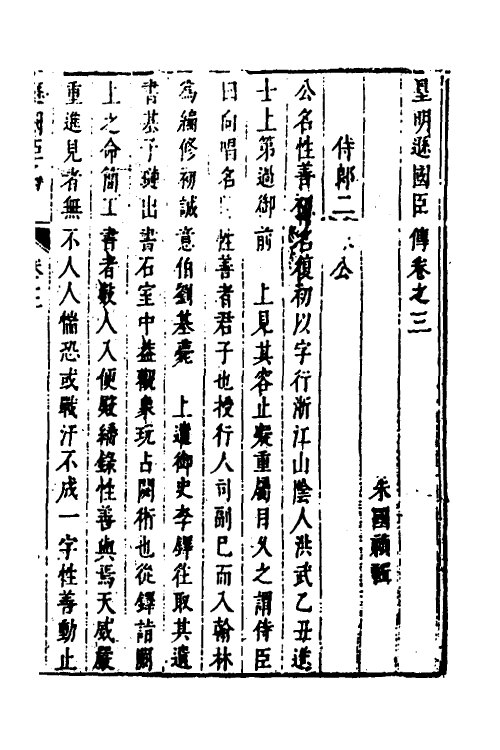 皇明遜國臣傳卷之三
朱國禎輯
侍郎二 公
公名性善 名復初以字行浙江山陰人洪武乙丑進
士上第過御前 上見其容止凝重屬目久之謂侍臣
曰向唱名 性善者君子也授行人司副已而入翰林
為編修初誠意伯劉基薨 上遣御史李鐸往取其遺
書基子璉出書石室中 觀象玩占 術也從鐸詣闕
上之命簡工書者 人入便殿繕錄性善與焉天威嚴
重進見者無不人人惴恐或戰汗不成一字性善動止
卷三